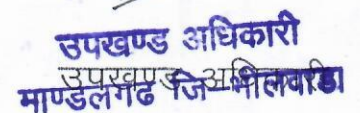 उपखण्ड अधिकारी
उपखण्ड अधिकारी
माण्डलगढ जि-भीलवाडा